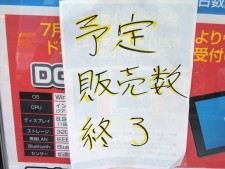 台数
7月
ド
より
受付
DG
予定
販売数
終了
OS Win
CPU イン
ディスプレイ 8.9
ストレージ 32G
無線LAN IEEE
Bluetooth Blueto
センサー